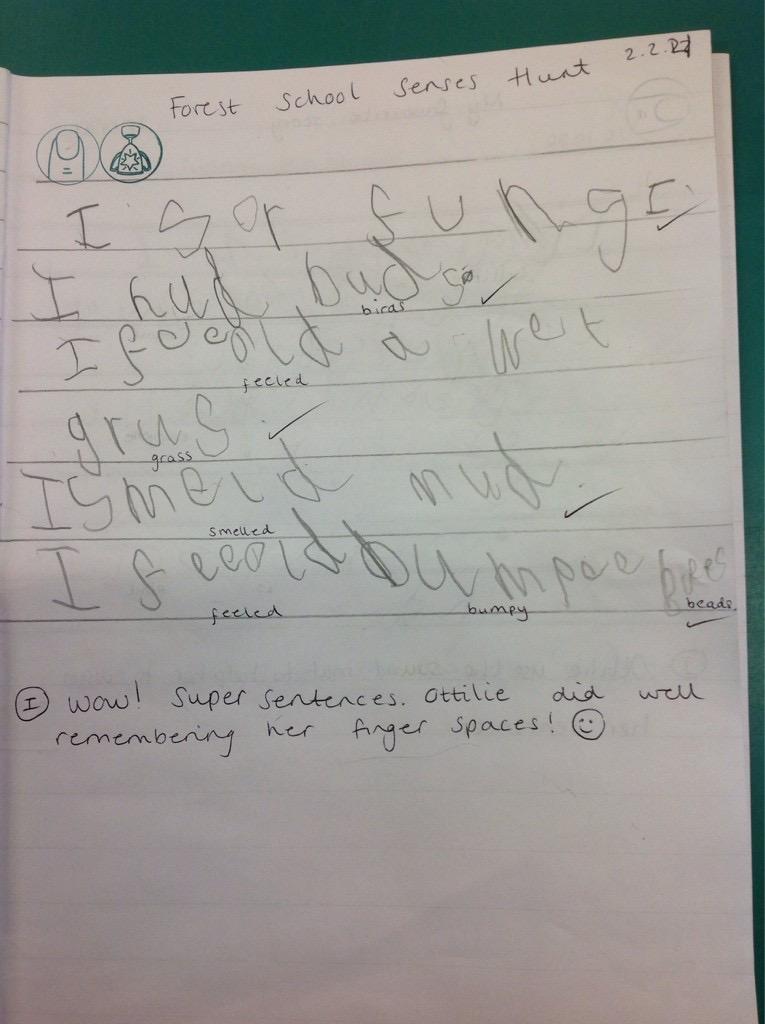 Forest School Senses Hunt
I sor fungI.
I hud buds
birds
I feeold a wet
feeled
grus.
grass
I smeld mud.
smelled
I feeeold bumpee bees
feeled bumpy beads.
I wow! Super sentences. Ottilie did well
remembering her finger spaces!